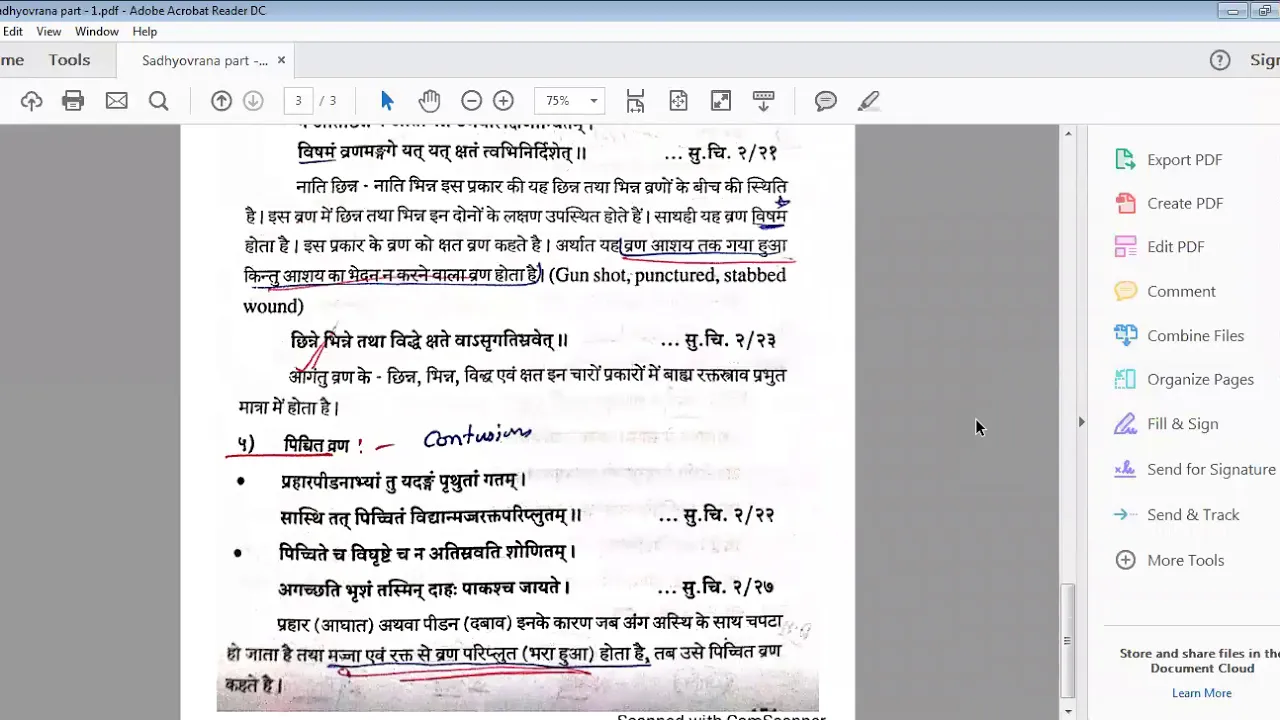 adhyovrana part - 1.pdf - Adobe Acrobat Reader DC
Edit View Window Help
me Tools Sadhyovrana part -... × Sign
3 / 3 75%
विषमं व्रणमङ्गे यत् यत् क्षतं त्वभिनिर्दिशेत्॥ ... सु.चि. २/२१
नाति छिन्न - नाति भिन्न इस प्रकार की यह छिन्न तथा भिन्न व्रणों के बीच की स्थिति
है। इस व्रण में छिन्न तथा भिन्न इन दोनों के लक्षण उपस्थित होते हैं। साथही यह व्रण विषम
होता है। इस प्रकार के व्रण को क्षत व्रण कहते है। अर्थात यह व्रण आशय तक गया हुआ
किन्तु आशय का भेदन न करने वाला व्रण होता है। (Gun shot, punctured, stabbed
wound)
छिन्ने भिन्ने तथा विद्धे क्षते वाऽसृगतिस्रवेत्॥ ... सु.चि. २/२३
आगंतु व्रण के - छिन्न, भिन्न, विद्ध एवं क्षत इन चारों प्रकारों में बाह्य रक्तस्त्राव प्रभुत
मात्रा में होता है।
५) पिच्चित व्रण ! - Contusion
• प्रहारपीडनाभ्यां तु यदङ्गं पृथुतां गतम्।
सास्थि तत् पिच्चितं विद्यान्मज्जरक्तपरिप्लुतम्॥ ... सु.चि. २/२२
• पिच्चिते च विघृष्टे च न अतिस्रवति शोणितम्।
अगच्छति भृशं तस्मिन् दाहः पाकश्च जायते। ... सु.चि. २/२७
प्रहार (आघात) अथवा पीडन (दबाव) इनके कारण जब अंग अस्थि के साथ चपटा
हो जाता है तथा मज्जा एवं रक्त से व्रण परिप्लुत (भरा हुआ) होता है, तब उसे पिच्चित व्रण
कहते है।
Scanned with CamScanner
Export PDF
Create PDF
Edit PDF
Comment
Combine Files
Organize Pages
Fill & Sign
Send for Signature
Send & Track
More Tools
Store and share files in the
Document Cloud
Learn More